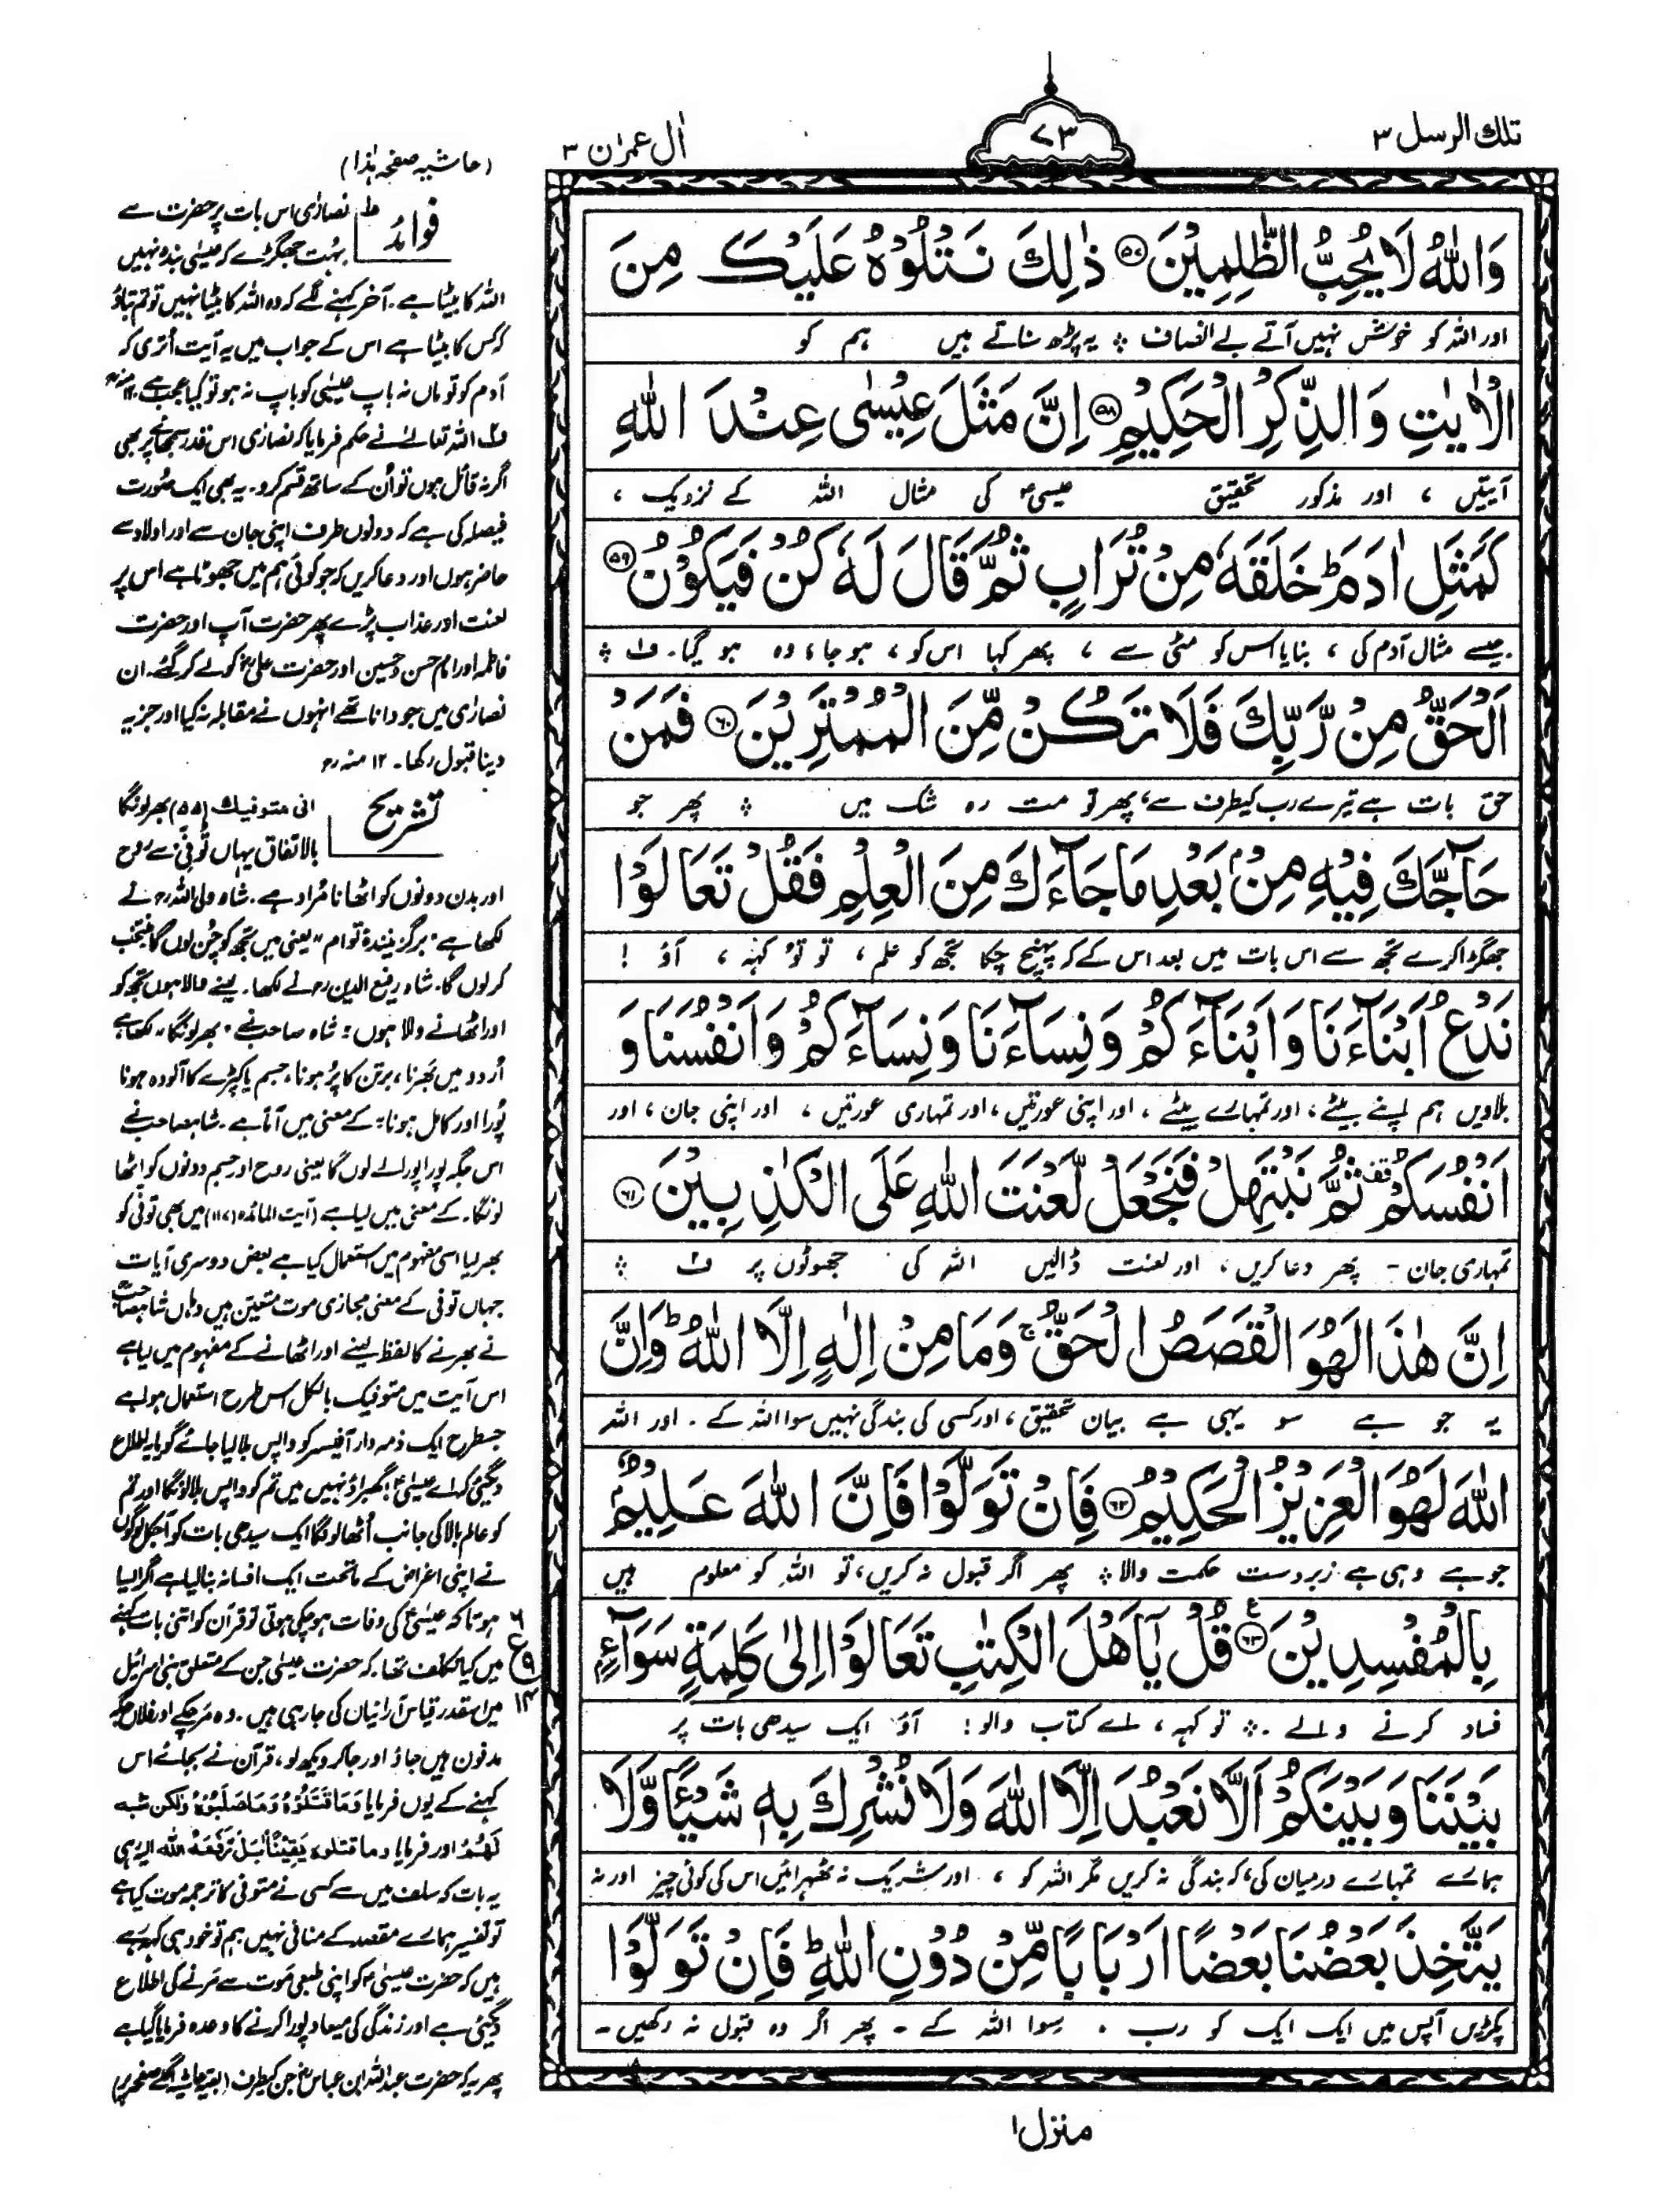 تلك الرسل ۳
۷۳
اٰل عمرٰن ۳
وَاللّٰهُ لَا يُحِبُّ الظّٰلِمِيْنَ ﴿۵۷﴾ ذٰلِكَ نَتْلُوْهُ عَلَيْكَ مِنَ
اور اللہ کو خوش نہیں آتے بے انصاف ؞ یہ پڑھ سناتے ہیں ہم کو
الْاٰيٰتِ وَالذِّكْرِ الْحَكِيْمِ ﴿۵۸﴾ اِنَّ مَثَلَ عِيْسٰى عِنْدَ اللّٰهِ
آیتیں ، اور مذکور تحقیق عیسیٰؑ کی مثال اللہ کے نزدیک ،
كَمَثَلِ اٰدَمَ ؕ خَلَقَهٗ مِنْ تُرَابٍ ثُمَّ قَالَ لَهٗ كُنْ فَيَكُوْنُ ﴿۵۹﴾
جیسے مثال آدم کی ، بنایا اس کو مٹی سے ، پھر کہا اس کو ، ہو جا ، وہ ہو گیا۔ ف۱ ؞
اَلْحَقُّ مِنْ رَّبِّكَ فَلَا تَكُنْ مِّنَ الْمُمْتَرِيْنَ ﴿۶۰﴾ فَمَنْ
حق بات ہے تیرے رب کیطرف سے، پھر تو مت رہ شک میں ؞ پھر جو
حَآجَّكَ فِيْهِ مِنْۢ بَعْدِ مَا جَآءَكَ مِنَ الْعِلْمِ فَقُلْ تَعَالَوْا
جھگڑا کرے تجھ سے اس بات میں بعد اس کے کہ پہنچ چکا تجھ کو علم ، تو تُو کہہ ، آؤ !
نَدْعُ اَبْنَآءَنَا وَاَبْنَآءَكُمْ وَنِسَآءَنَا وَنِسَآءَكُمْ وَاَنْفُسَنَا وَ
بلاویں ہم اپنے بیٹے ، اور تمہارے بیٹے ، اور اپنی عورتیں ، اور تمہاری عورتیں ، اور اپنی جان ، اور
اَنْفُسَكُمْ ثُمَّ نَبْتَهِلْ فَنَجْعَلْ لَّعْنَتَ اللّٰهِ عَلَى الْكٰذِبِيْنَ ﴿۶۱﴾
تمہاری جان - پھر دعا کریں ، اور لعنت ڈالیں اللہ کی جھوٹوں پر ف۲ ؞
اِنَّ هٰذَا لَهُوَ الْقَصَصُ الْحَقُّ ۚ وَمَا مِنْ اِلٰهٍ اِلَّا اللّٰهُ ؕ وَاِنَّ
یہ جو ہے سو یہی ہے بیان تحقیق ، اور کسی کی بندگی نہیں سوا اللہ کے . اور اللہ
اللّٰهَ لَهُوَ الْعَزِيْزُ الْحَكِيْمُ ﴿۶۲﴾ فَاِنْ تَوَلَّوْا فَاِنَّ اللّٰهَ عَلِيْمٌۢ
جو ہے وہی ہے زبردست حکمت والا ؞ پھر اگر قبول نہ کریں ، تو اللہ کو معلوم ہیں
بِالْمُفْسِدِيْنَ ﴿۶۳﴾ قُلْ يٰۤاَهْلَ الْكِتٰبِ تَعَالَوْا اِلٰى كَلِمَةٍ سَوَآءٍۭ
فساد کرنے والے ؞ تو کہہ ، اے کتاب والو! آؤ ایک سیدھی بات پر
بَيْنَنَا وَبَيْنَكُمْ اَلَّا نَعْبُدَ اِلَّا اللّٰهَ وَلَا نُشْرِكَ بِهٖ شَيْـًٔا وَّلَا
ہمارے تمہارے درمیان کی، کہ بندگی نہ کریں مگر اللہ کو ، اور شریک نہ ٹھہرائیں اس کی کوئی چیز اور نہ
يَتَّخِذَ بَعْضُنَا بَعْضًا اَرْبَابًا مِّنْ دُوْنِ اللّٰهِ ؕ فَاِنْ تَوَلَّوْا
پکڑیں آپس میں ایک ایک کو رب . سوا اللہ کے - پھر اگر وہ قبول نہ رکھیں -
منزل۱
(حاشیہ صفحہ ہٰذا)
فوائد ف۱ نصارٰی اس بات پر حضرت سے
بہت جھگڑے کہ عیسیٰ بندہ نہیں
اللہ کا بیٹا ہے . آخر کہنے لگے کہ وہ اللہ کا بیٹا نہیں تو تم بتاؤ
کہ کس کا بیٹا ہے اس کے جواب میں یہ آیت اُتری کہ
آدم کو تو ماں نہ باپ عیسیٰ کو باپ نہ ہو تو کیا عجب ہے ۱۲ منہ
ف۲ اللہ تعالےٰ نے حکم فرمایا کہ نصارٰی اس قدر سمجھانے پر بھی
اگر نہ قائل ہوں تو اُن کے ساتھ قسم کرو۔ یہ بھی ایک صُورت
فیصلہ کی ہے کہ دونوں طرف اپنی جان سے اور اولاد سے
حاضر ہوں اور دعا کریں کہ جو کوئی ہم میں جھوٹا ہے اس پر
لعنت اور عذاب پڑے پھر حضرت آپ اور حضرت
فاطمہ اور امام حسن و حسین اور حضرت علیؓ کو لے کر گئے . ان
نصارٰی میں جو دانا تھے انہوں نے مقابلہ نہ کیا اور جزیہ
دینا قبول رکھا۔ ۱۲ منہ رح
تشریح انی متوفیك (۵۵) بھر لونگا
بالاتفاق یہاں تُوفّی سے روح
اور بدن دونوں کو اٹھانا مُراد ہے . شاہ ولی اللہ رح نے
لکھا ہے " برگزینندۂ توام " یعنی میں تجھ کو چُن لوں گا منتخب
کر لوں گا. شاہ رفیع الدین رح نے لکھا . لینے والا ہوں تجھ کو
اور اٹھانے والا ہوں " شاہ صاحب نے " بھر لونگا " لکھا ہے
اُردو میں بھرنا ، برتن کا پُر ہونا ، جسم یا کپڑے کا آلودہ ہونا
پُورا اور کامل ہونا " کے معنی میں آتا ہے . شاہ صاحب نے
اس جگہ پورا پورا لے لوں گا یعنی روح اور جسم دونوں کو اٹھا
لونگا . کے معنی میں لیا ہے (آیت المائدہ (۱۱۷) میں بھی توفی کو
بھر لیا اسی مفہوم میں استعمال کیا ہے بعض دوسری آیات
جہاں توفی کے معنی مجازی موت متعین ہیں وہاں شاہ صاحب
نے بھرنے کا لفظ لینے اور اٹھانے کے مفہوم میں لیا ہے
اس آیت میں متوفیک بالکل اس طرح استعمال ہوا ہے
جسطرح ایک ذمہ دار آفیسر کو واپس بلا لیا جائے گویا یہ اطلاع
دیگئی کہ اے عیسیٰؑ ! گھبراؤ نہیں میں تم کو واپس بلا لونگا اور تم
کو عالم بالا کی جانب اُٹھا لونگا ایک سیدھی بات کو آجکل لوگوں
نے اپنی اغراض کے ماتحت ایک افسانہ بنا لیا ہے اگر ایسا
ہوتا کہ عیسیٰؑ کی وفات ہو چکی ہوتی تو قرآن کو اتنی بات کہنے
میں کیا تکلف تھا کہ حضرت عیسیٰ جن کے متعلق بنی اسرائیل
میں اسقدر قیاس آرائیاں کی جا رہی ہیں . وہ مر چکے اور فلاں جگہ
مدفون ہیں جاؤ اور جا کر دیکھ لو ، قرآن نے بجائے اس
کہنے کے یوں فرمایا وَمَا قَتَلُوْهُ وَمَا صَلَبُوْهُ وَلٰكِنْ شبه
لَهُمْ اور فرمایا وما قتلوه يَقِيْنًا بَلْ رَّفَعَهُ اللّٰه اليه ہی
یہ بات کہ سلف میں سے کسی نے متوفی کا ترجمہ موت کیا ہے
تو تفسیر ہمارے مقصد کے منافی نہیں ہم تو خود ہی کہہ رہے
ہیں کہ حضرت عیسیٰؑ کو اپنی طبعی موت سے مرنے کی اطلاع
دیگئی ہے اور زندگی کی میعاد پورا کرنے کا وعدہ فرمایا گیا ہے
پھر یہ کہ حضرت عبداللہ ابن عباسؓ جن کیطرف (بقیہ حاشیہ اگلے صفحہ پر)
ع
۶
۹
۱۴